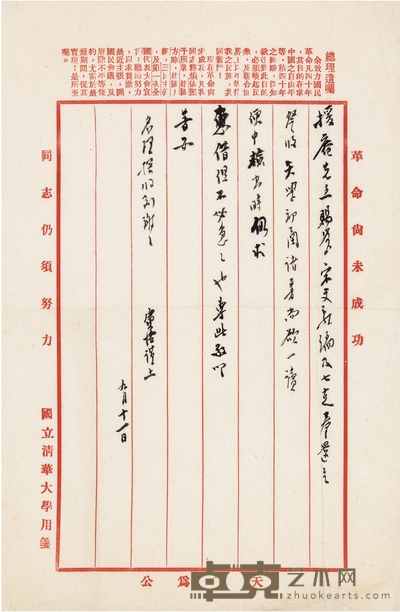 總理遺囑
余致力國民
革命凡四十年
其目的在求
中國之自由平
等積四十年
之經驗深知
欲達到此目的
必須喚起民
眾及聯合世
界上以平等待
我之民族共
同奮鬥
現在革命尚
未成功凡我
同志務須依照
余所著建國
方略建國大
綱三民主義
及第一次全
國代表大會宣
言繼續努力
以求貫徹
最近主張開
國民會議及
廢除不平等條
約尤須於最
短期間促其
實現是所至
囑
革命尚未成功
援庵先生賜鑒宋文編及七奉還乞
詧收天學初函諸書尚欲一讀
便中檢出時仍求
惠借但不必急急也專此敬叩
著安
名理探收到謝謝
謹上
九月十一日
同志仍須努力
國立清華大學用箋
天
為公
卓克艺术网
www.zhuokearts.com